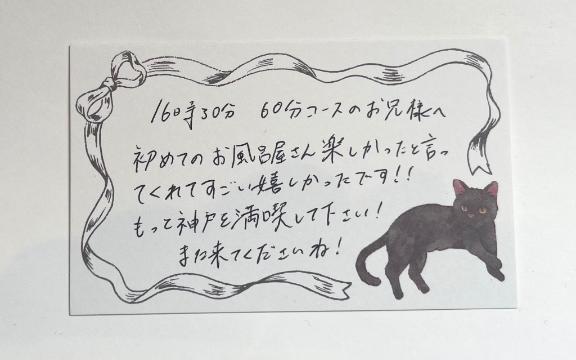 16時30分 60分コースのお兄様へ
初めてのお風呂屋さん楽しかったと言っ
てくれてすごい嬉しかったです!!
もっと神戸を満喫して下さい!
また来てくださいね!